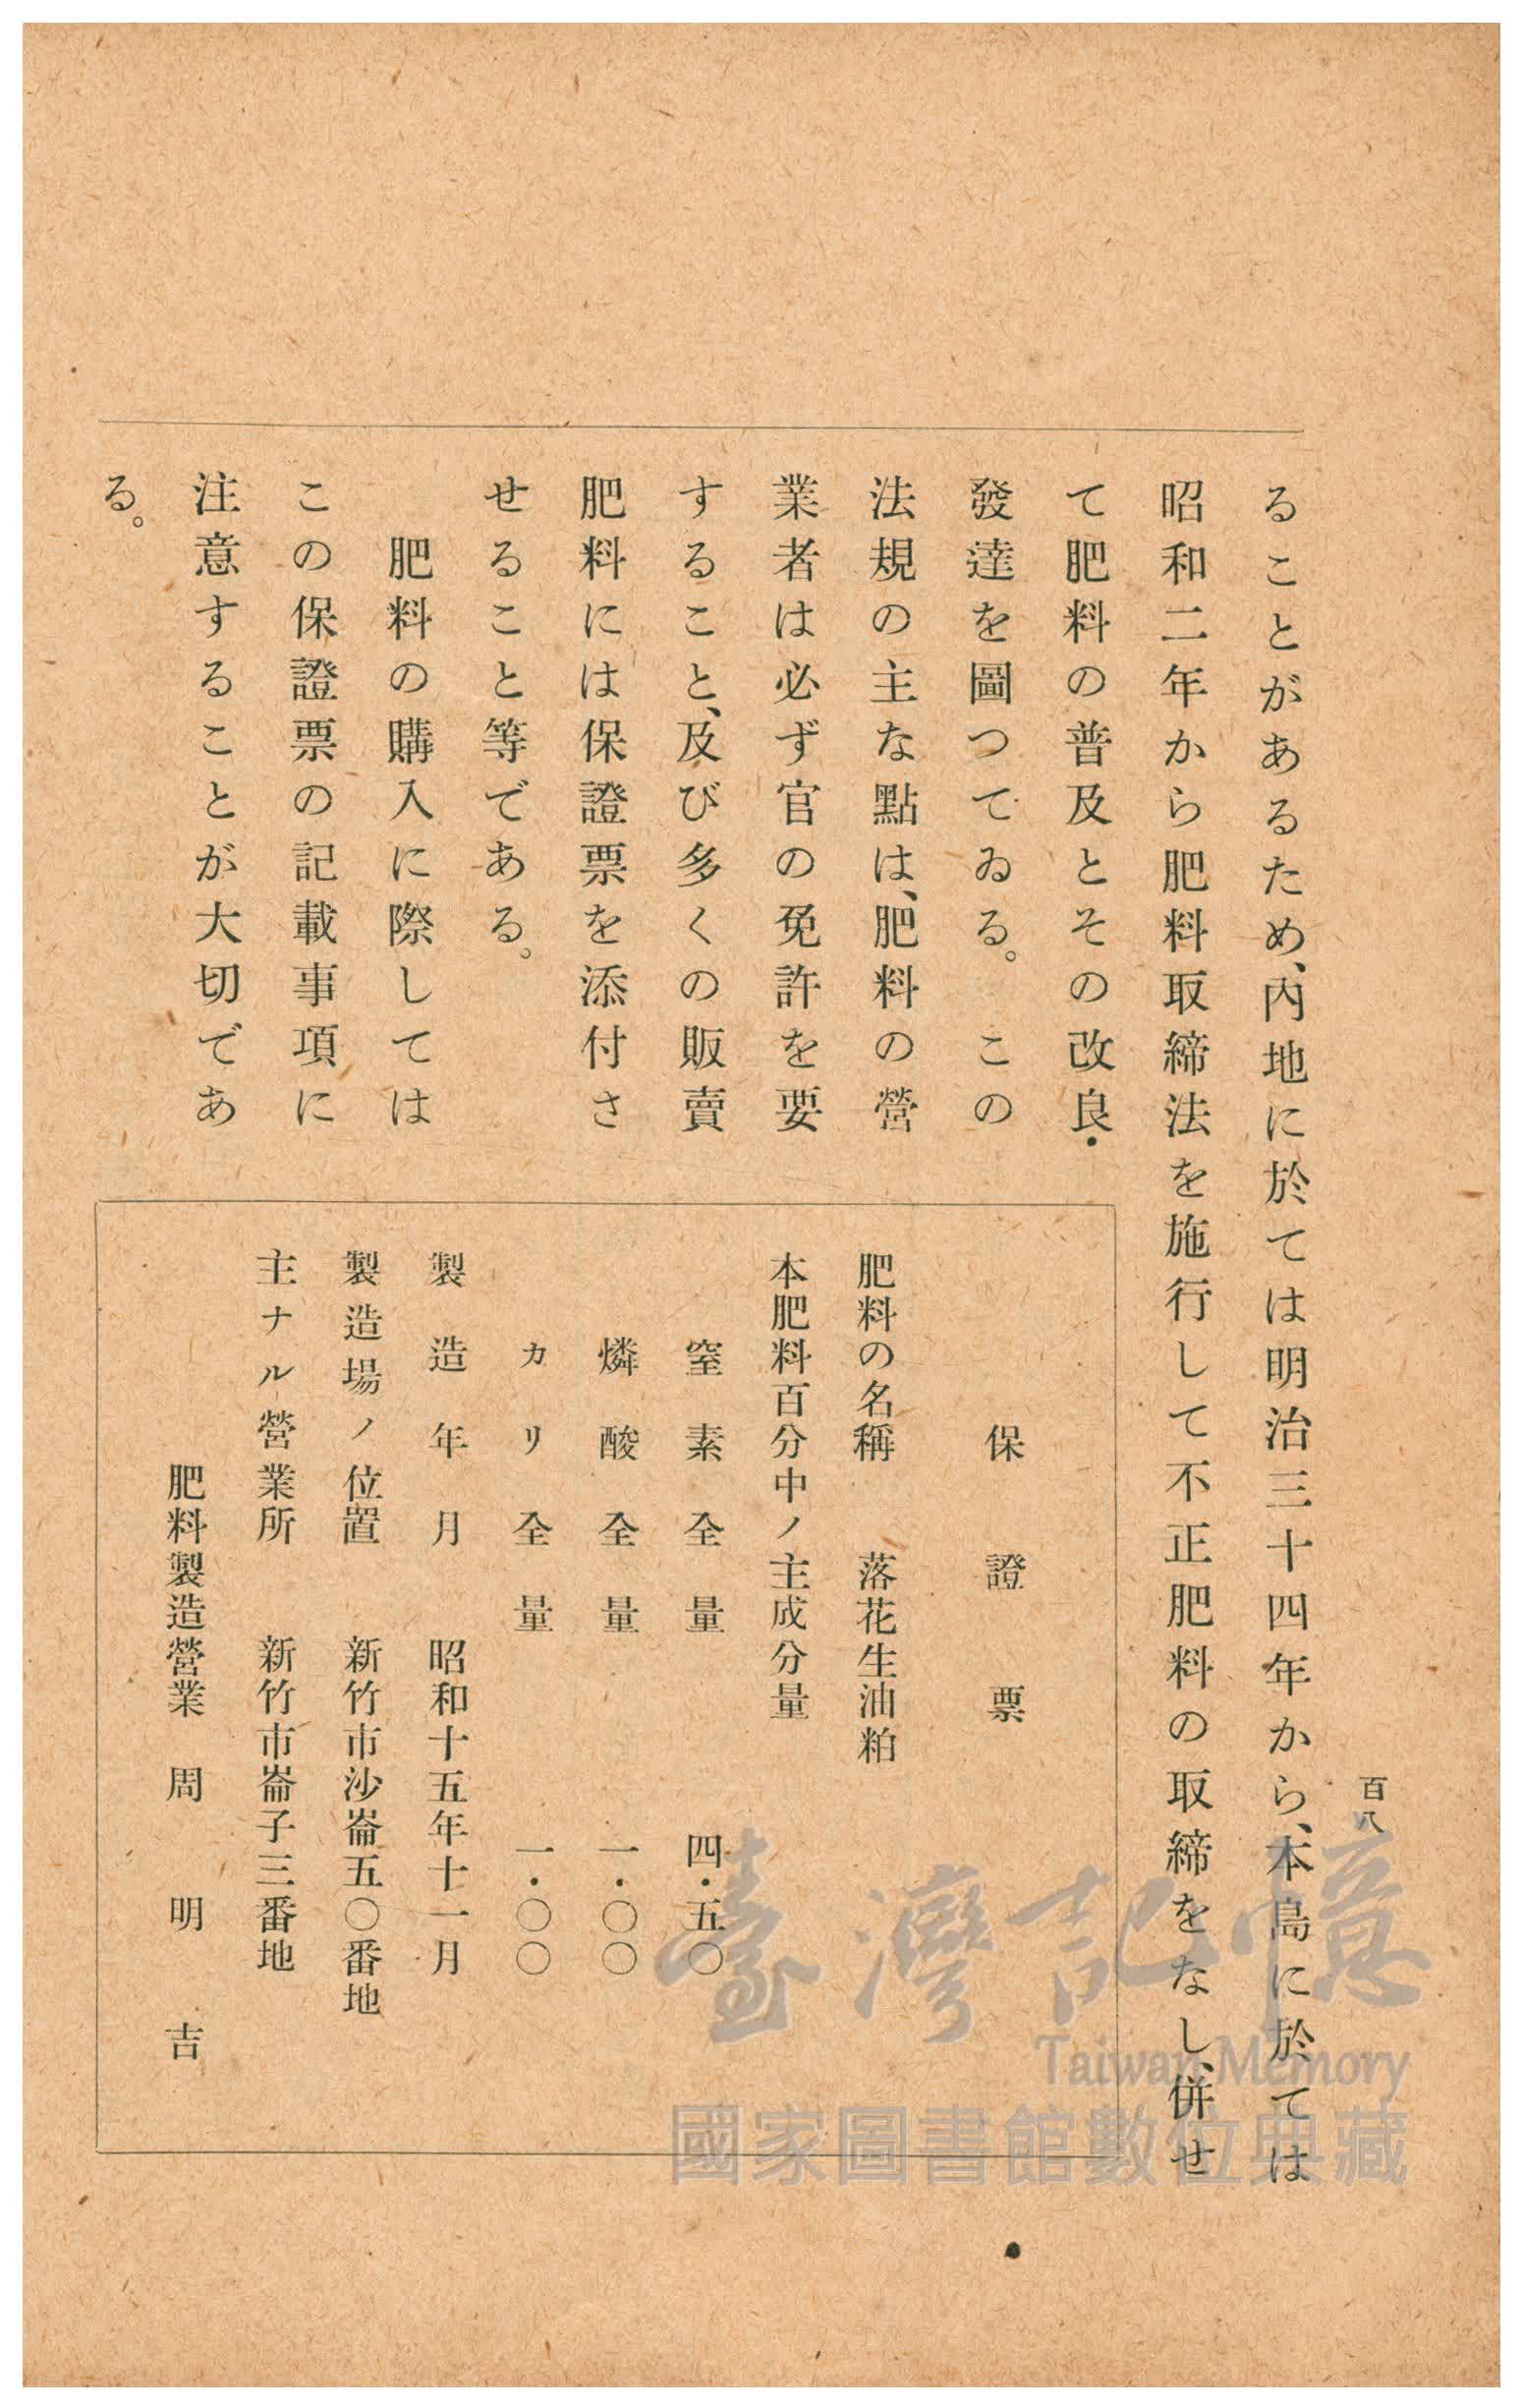 百八
ることがあるため、內地に於ては明治三十四年から、本島に於ては
昭和二年から肥料取締法を施行して不正肥料の取締をなし、併せ
て肥料の普及とその改良・
發達を圖つてゐる。この
法規の主な點は、肥料の營
業者は必ず官の免許を要
すること、及び多くの販賣
肥料には保證票を添付さ
せること等である。
肥料の購入に際しては
この保證票の記載事項に
注意することが大切であ
る。
保證票
肥料の名稱 落花生油粕
本肥料百分中ノ主成分量
窒素全量 四・五〇
燐酸全量 一・〇〇
カリ全量 一・〇〇
製造年月 昭和十五年十一月
製造場ノ位置 新竹市沙崙五〇番地
主ナル營業所 新竹市崙子三番地
肥料製造營業 周明吉
臺灣記憶
Taiwan Memory
國家圖書館數位典藏